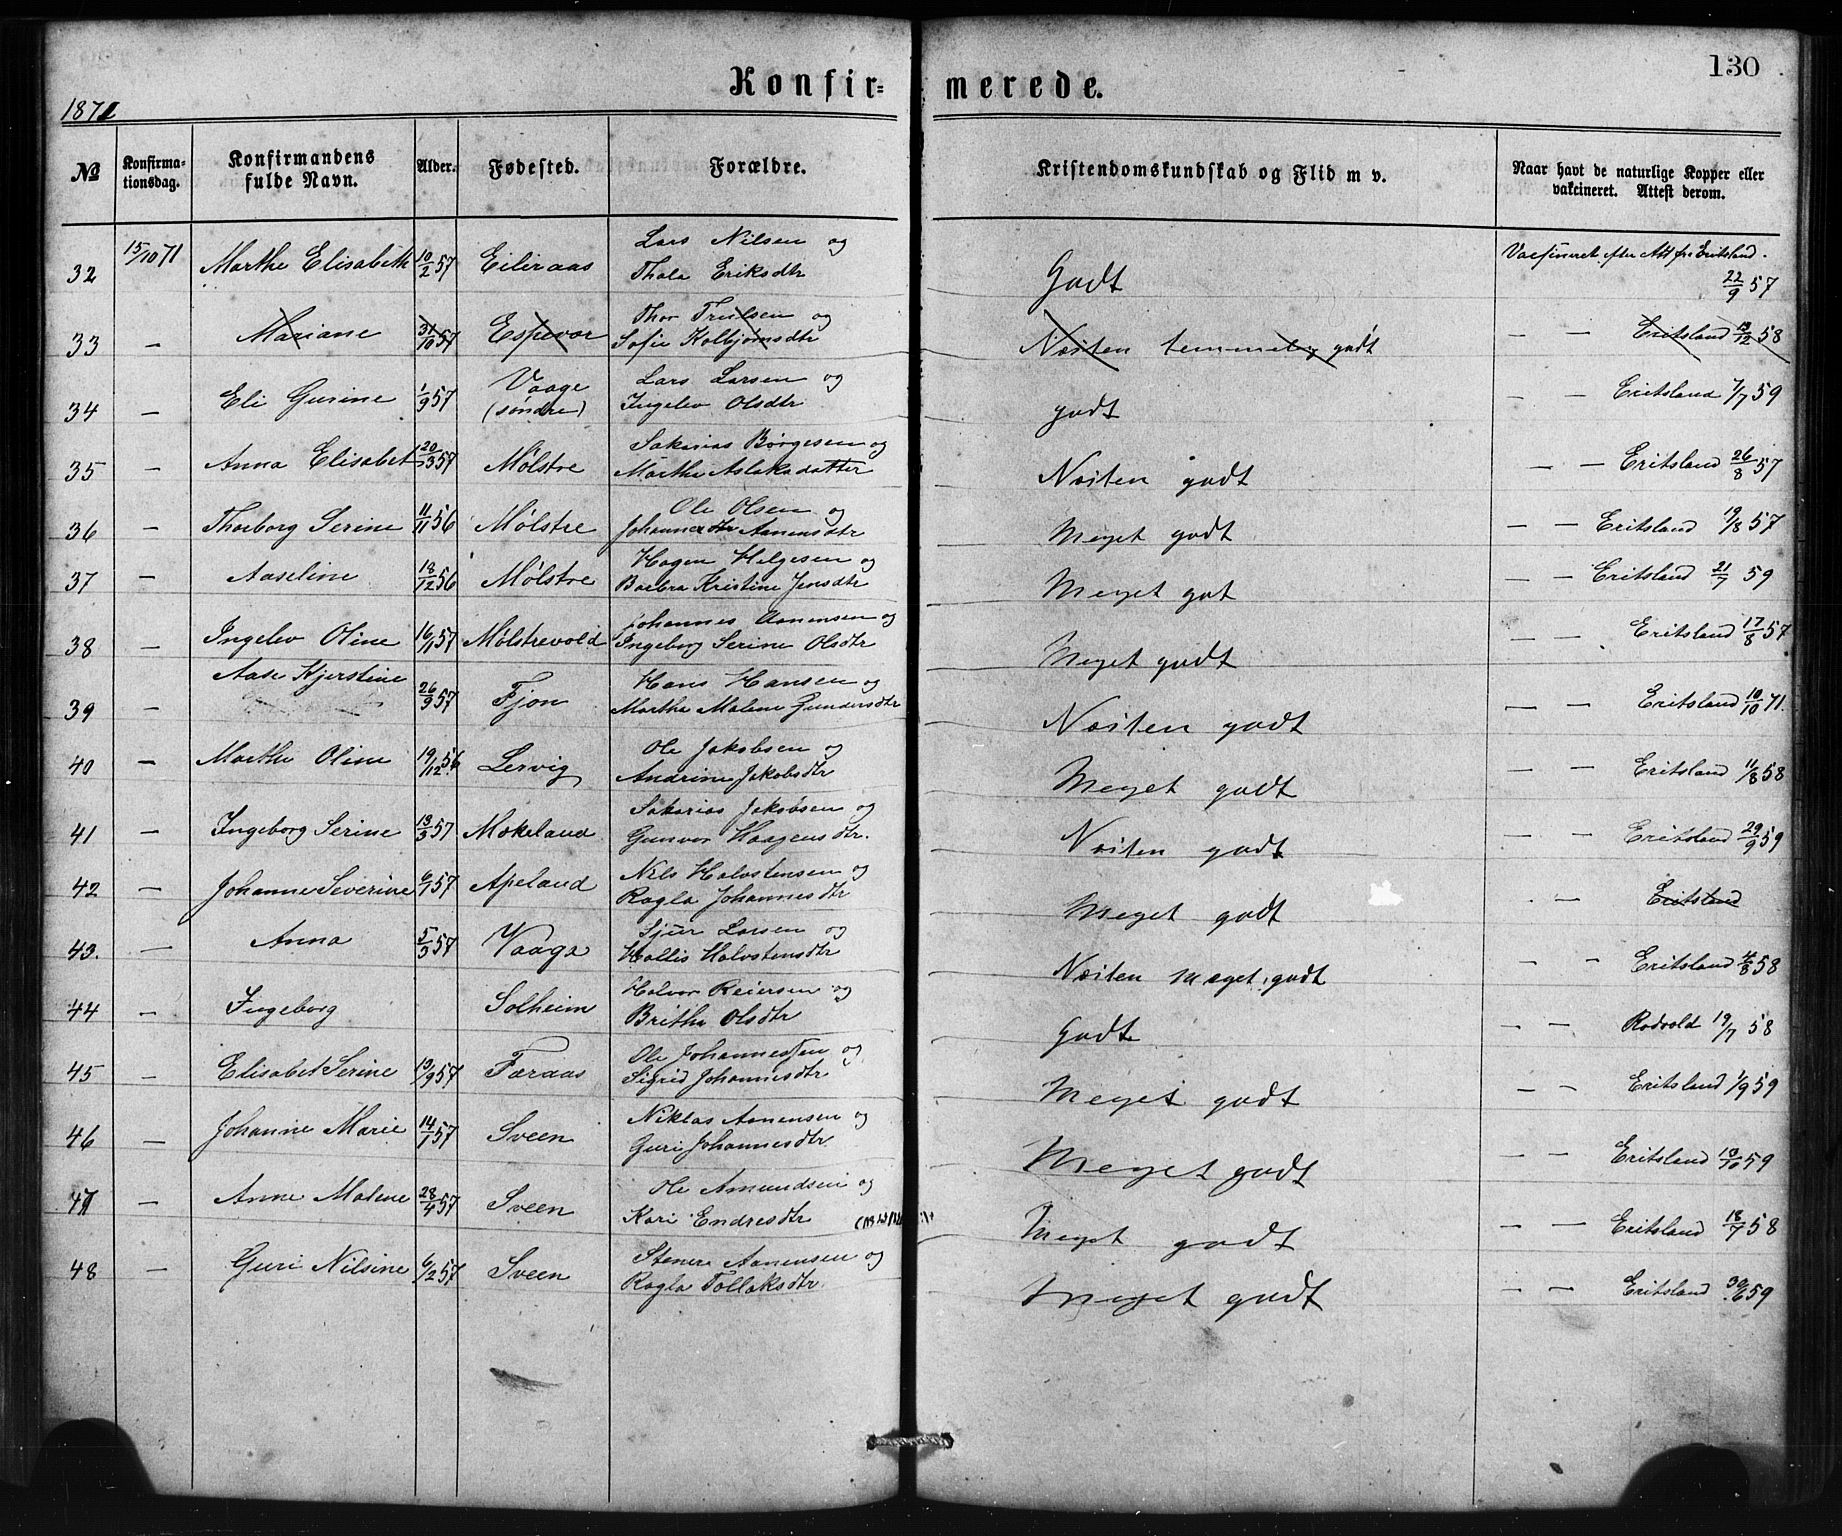 130
Konfir= merede.
1871
No Konfirma-tionsdag. Konfirmandens fulde Navn. Alder. Fødested. Forældre. Kristendomskundskab og Flid m v. Naar havt de naturlige Kopper eller vakcineret. Attest derom.
32 15/10 71 Marthe Elisabeth 10/2 57 Eileraas Lars Nilsen og Thala Eriksdtr Godt Vacsineret efter Att fra Eritsland. 22/9 57
33 — Mariane 31/10 57 Espevær Thor Trulsen og Sofie Kolbjørnsdtr Næsten temmelig godt — — Eritsland 13/12 58
34 — Eli Gurine 1/9 57 Vaage (søndre) Lars Larsen og Ingelev Olsdtr godt — — Eritsland 7/7 59
35 — Anna Elisabet 20/3 57 Mølstre Sakarias Børgesen og Marthe Aslaksdatter Næsten godt — — Eritsland 26/8 57
36 — Thorborg Serine 11/11 56 Mølstre Ole Olsen og Johannesdtr Aanensdtr Meget godt — — Eritsland 19/8 57
37 — Aaseline 18/12 56 Mølstre Hagen Helgesen og Barbra Kristine Jensdtr Meget got — — Eritsland 21/7 59
38 — Ingelev Oline 16/1 57 Mølstrevold Johannes Aanensen og Ingeborg Serine Olsdtr Meget godt — — Eritsland 17/8 57
39 — Aase Kjerstine 26/9 57 Fjon Hans Hansen og Martha Malene Gundersdtr Næsten godt — — Eritsland 10/10 71.
40 — Marthe Oline 19/12 56 Lervig Ole Jakobsen og Andrine Jakobsdtr Meget godt — — Eritsland 11/8 58
41 — Ingeborg Serine 13/3 57 Mækeland Sakarias Jakobsen og Gunvor Haagensdtr. Næsten godt — — Eritsland 29/9 59
42 — Johanne Severine 6/1 57 Apeland Nels Halvstensen og Ragla Johannesdtr Meget godt - — Eritsland
43. — Anna 5/3 57 Vaage Sjur Larsen og Hallis Halvstensdtr Næsten meget godt — - Eritsland 4/8 58
44 — Ingeborg Solheim Halvor Reiersen og Britha Olsdtr Godt — — Rodvold 19/7 58
45 — Elisabet Serine 13/9 57 Færaas Ole Johannessen og Sigrid Johannesdtr Meget godt — - Eritsland 1/9 59
46 — Johanne Marie 14/1 57 Sveen Niklas Aanensen og Guri Johannesdtr Meget godt — — Eritsland 13/10 59
47 — Anne Malene 28/4 57 Sveen Ole Amundsen og Kari Endresdtr Meget godt — — Eritsland 18/7 58
48 — Guri Nilsine 6/2 57 Sveen Stener Aanensen og Ragla Tollaksdtr Meget godt — — Eritsland 30/6 59